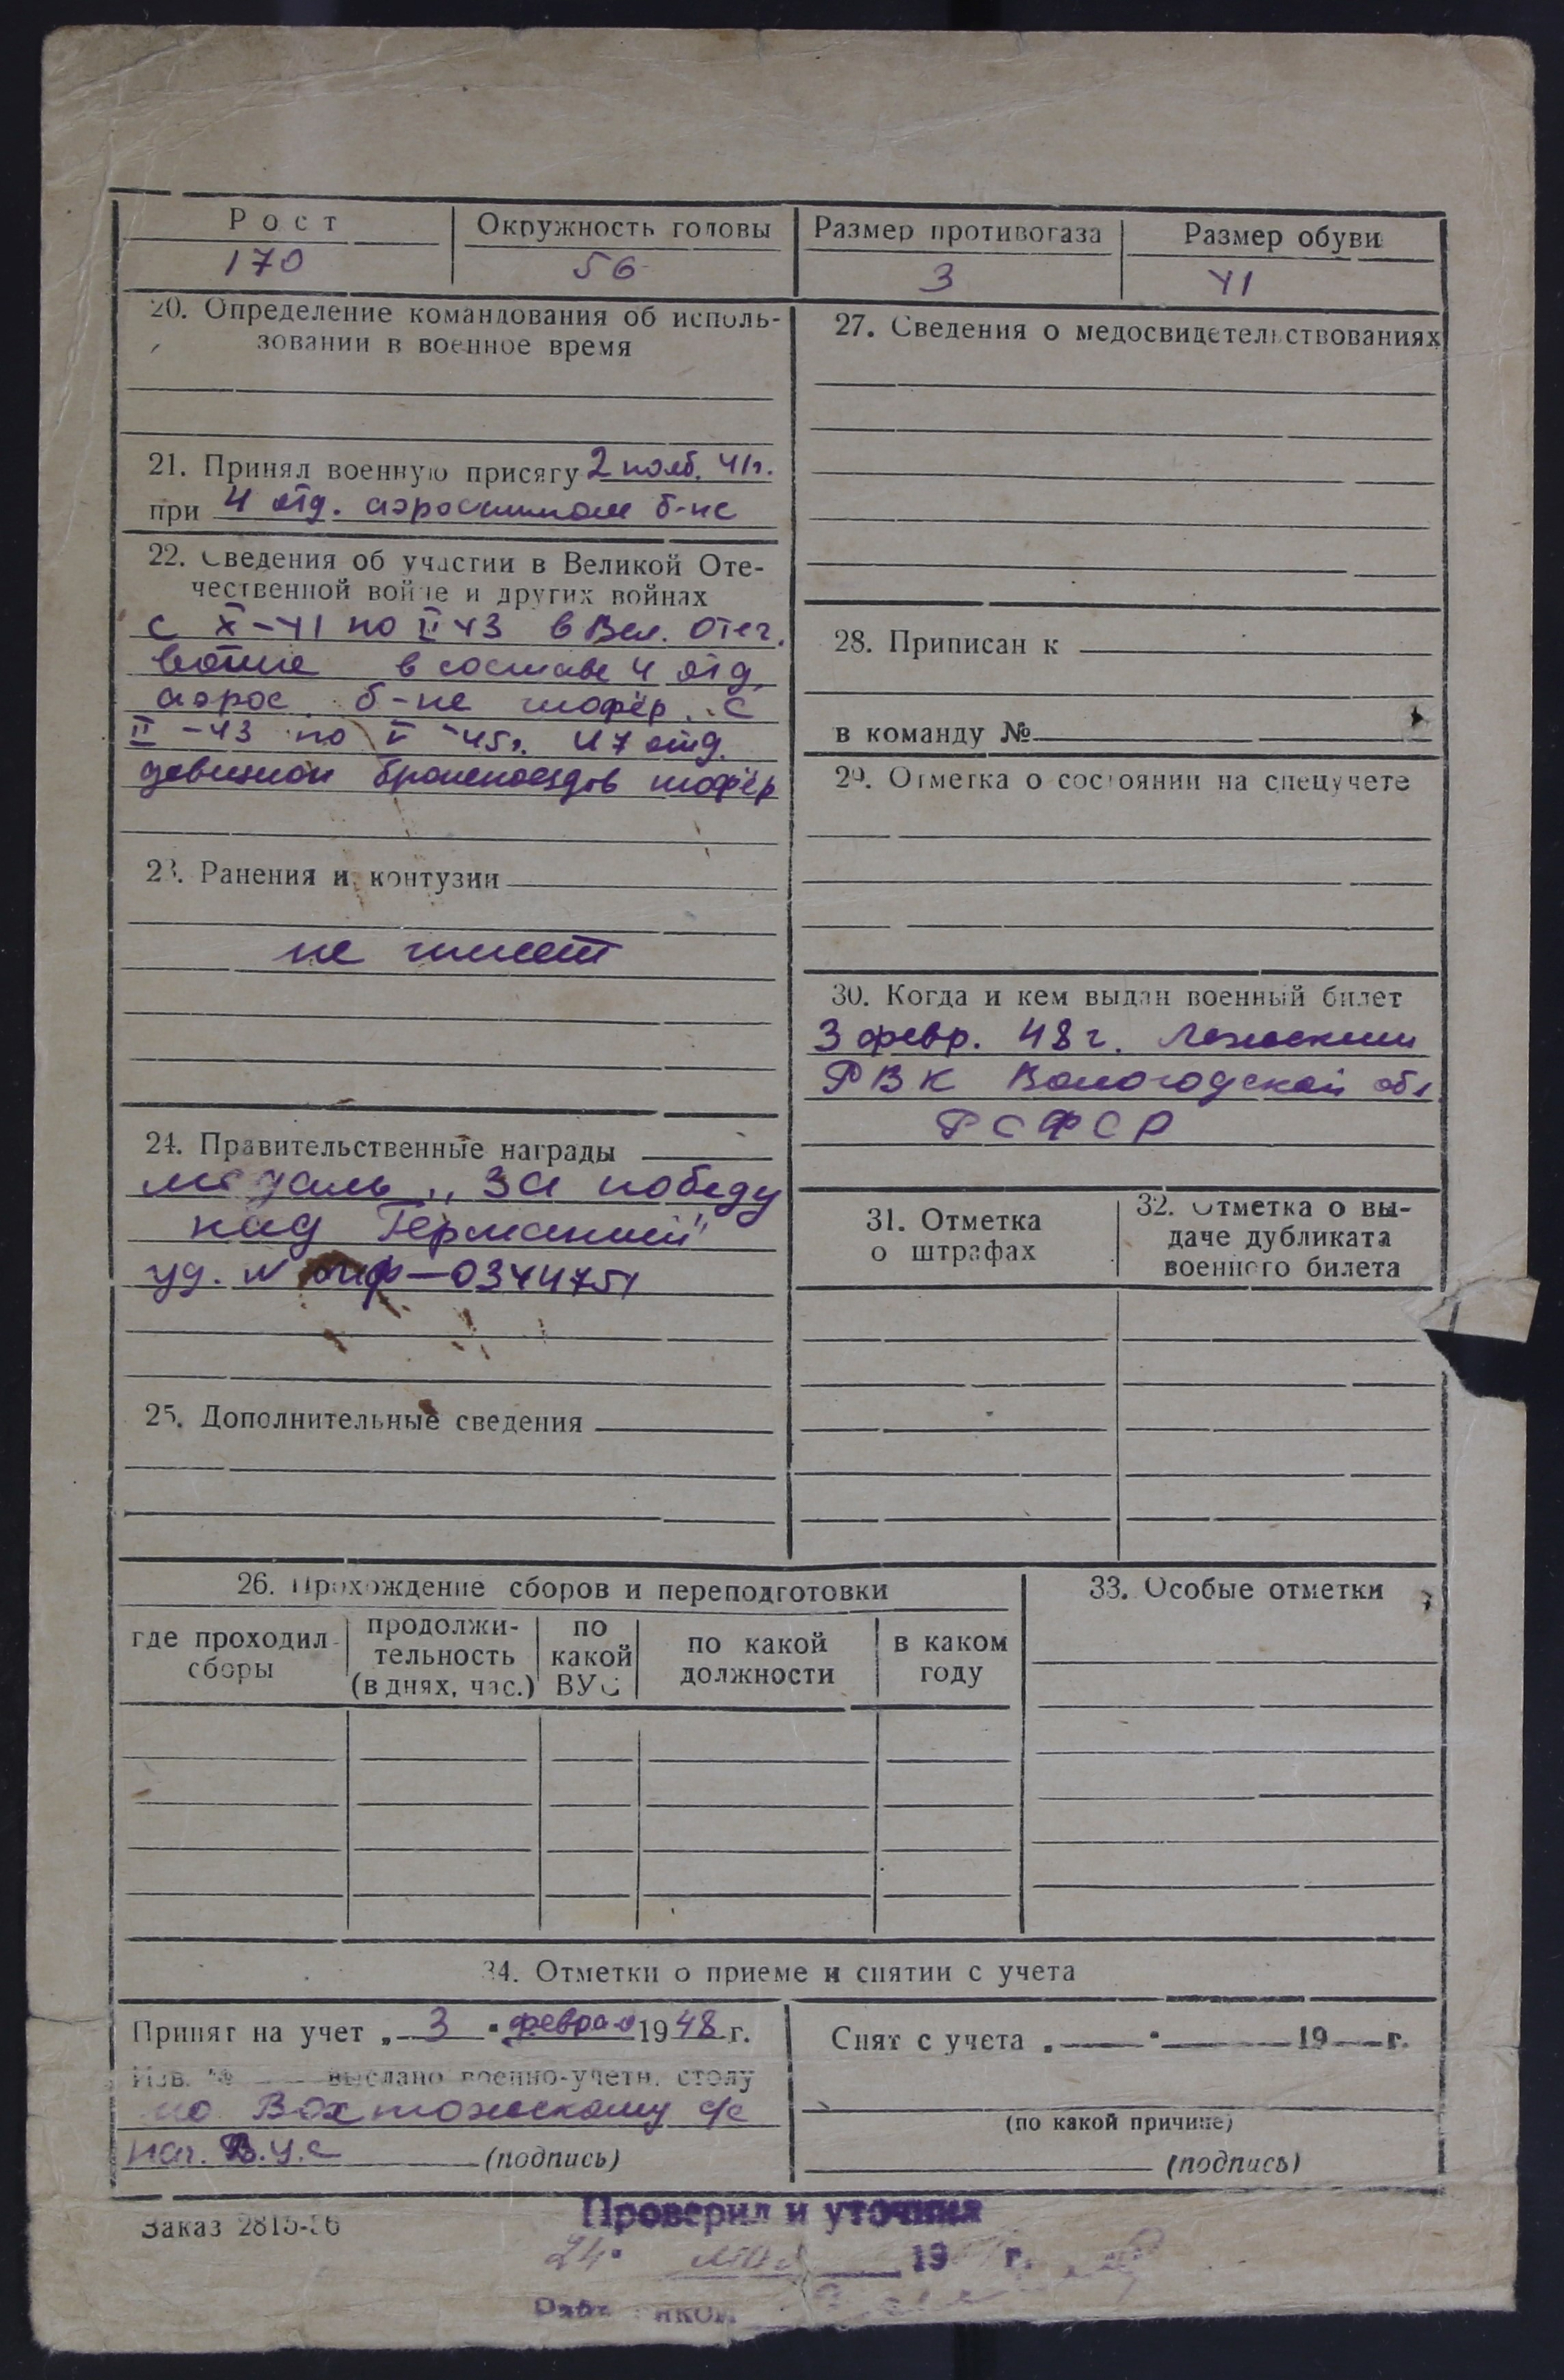 Рост Окружность головы Размер противогаза Размер обуви
170 56 3 41
20. Определение командования об исполь-
зовании в военное время
21. Принял военную присягу 2 нояб. 41г.
при 4 отд. аэросанном б-не
22. Сведения об участии в Великой Оте-
чественной войне и других войнах
с X-41 по II 43 в Вел. Отеч.
войне в составе 4 отд.
аэрос. б-не шофёр. с
II-43 по V-45г. 47 отд.
девизион бронепоездов шофёр
23. Ранения и контузии
не имеет
24. Правительственные награды
медаль „За победу
над Германией"
уд. №
0344751
25. Дополнительные сведения
27. Сведения о медосвидетельствованиях
28. Приписан к
в команду №
29. Отметка о состоянии на спецучете
30. Когда и кем выдан военный билет
3 февр. 48г.
РВК Вологодской обл.
РСФСР
31. Отметка
о штрафах
32. Отметка о вы-
даче дубликата
военного билета
26. Прохождение сборов и переподготовки
где проходил
сборы
продолжи-
тельность
(в днях, час.)
по
какой
ВУС
по какой
должности
в каком
году
33. Особые отметки
34. Отметки о приеме и снятии с учета
Принят на учет „ 3 " февраля 1948 г.
Изв. № выслано военно-учетн. столу
по Вохтожскому с/с
нач. В.у.с (подпись)
Снят с учета „ " 19 г.
(по какой причине)
(подпись)
Заказ 2815-
Проверил и уточнил
24 19 г.